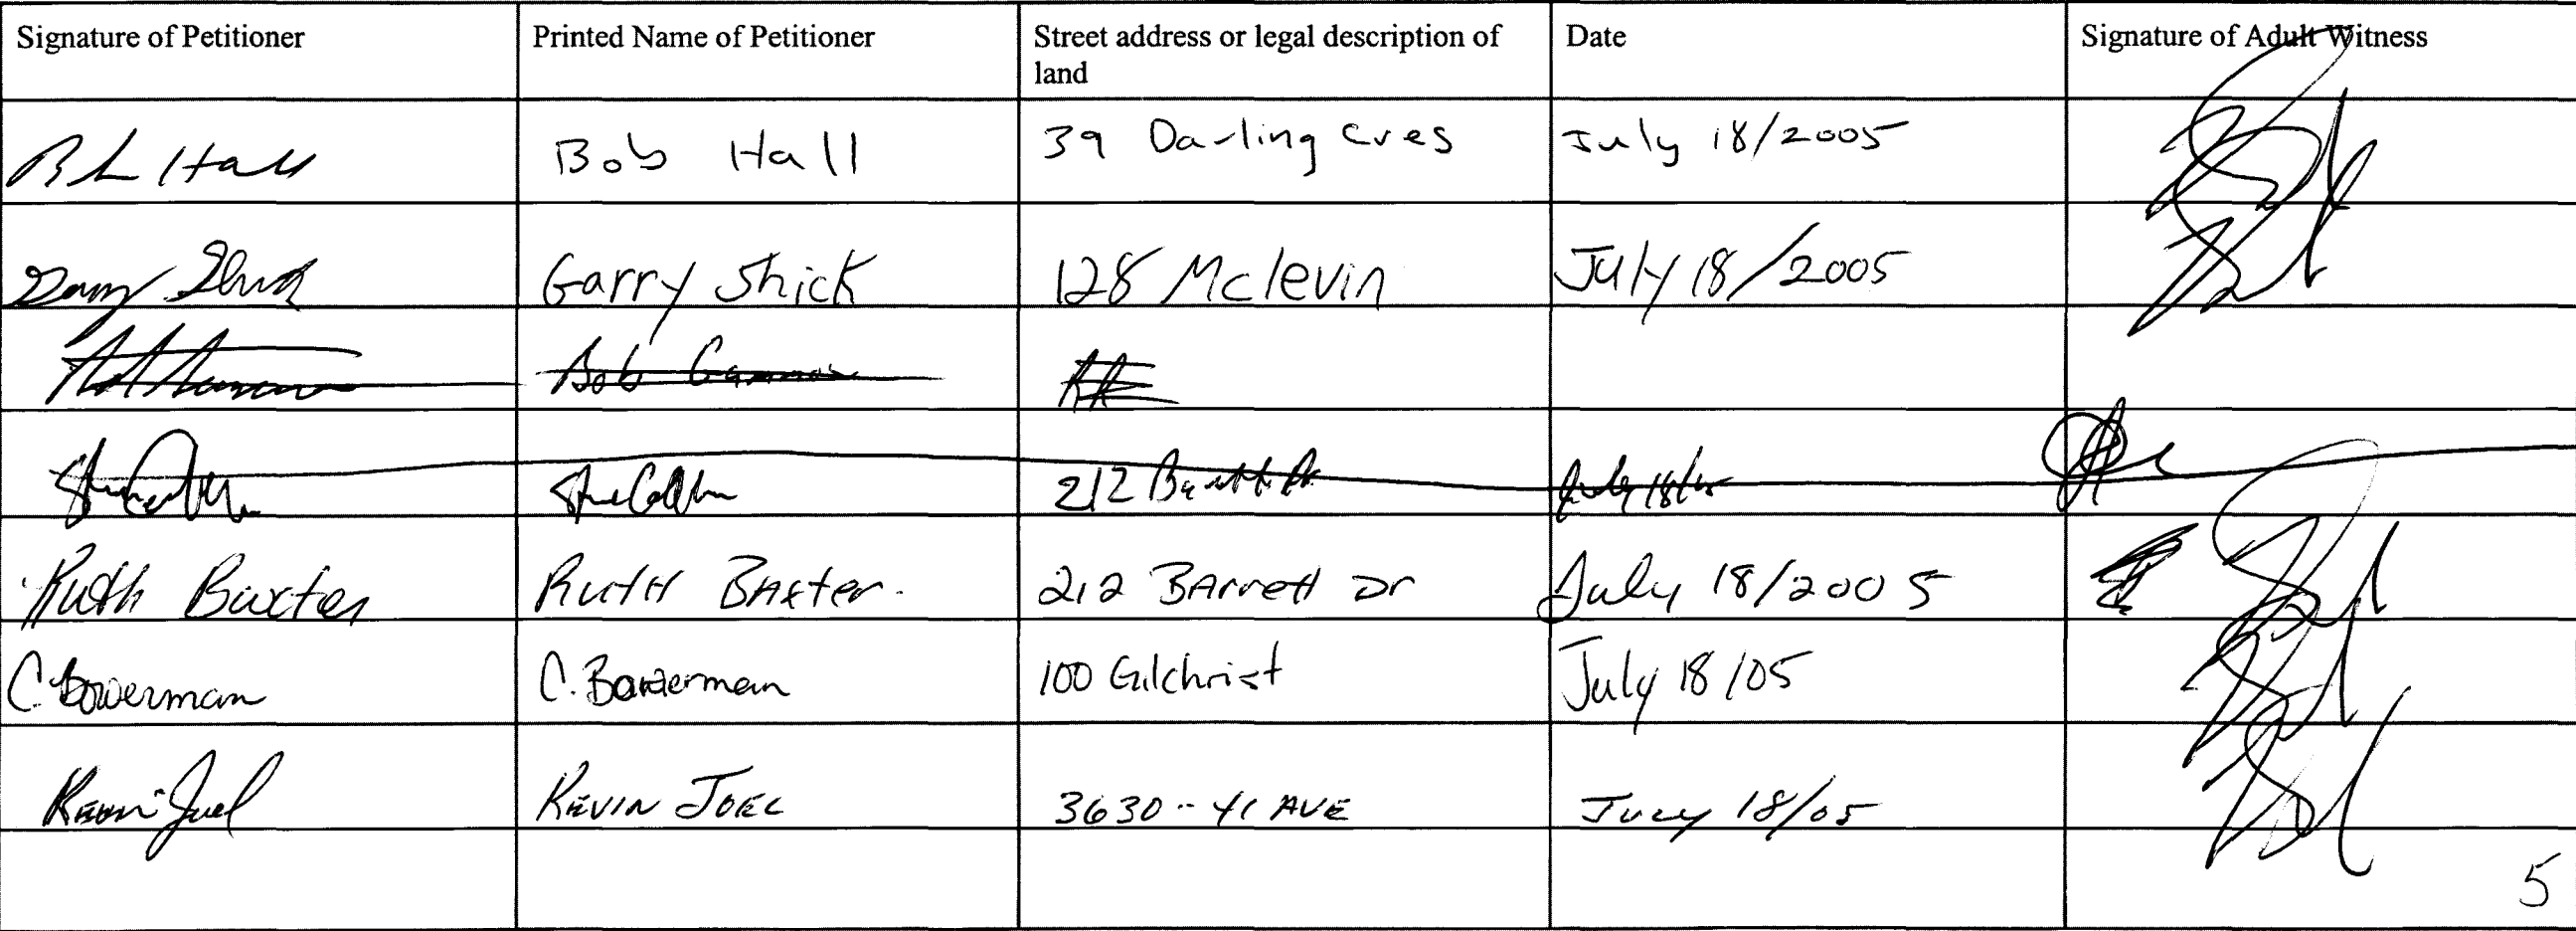 Signature of Petitioner Printed Name of Petitioner Street address or legal description of land Date Signature of Adult Witness
Bob Hall Bob Hall 39 Darling Cres July 18/2005
Garry Shick Garry Shick 128 Mclevin July 18/2005
Bob
212 July 18/05
Ruth Baxter Ruth Baxter. 212 Barrett Dr July 18/2005
C. Bowerman C. Bowerman 100 Gilchrist July 18/05
Kevin Joel KEVIN JOEL 3630-41 AVE JULY 18/05
5